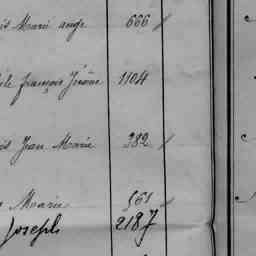 Marie ange 666
françois Jérôme 1104
Jean Marie 382
Marie 561
Joseph 2187